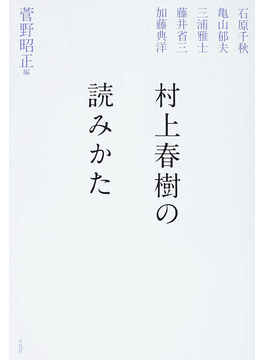 石原千秋
亀山郁夫
三浦雅士
藤井省三
加藤典洋
菅野昭正 編
村上春樹の
読みかた
平凡社